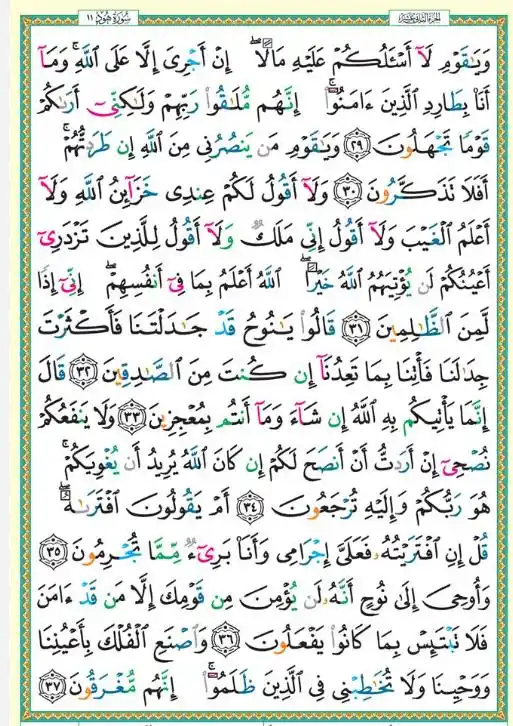 الجزء الثاني عشر سورة هود ١١
وَيَـٰقَوْمِ لَآ أَسْـَٔلُكُمْ عَلَيْهِ مَالًا ۖ إِنْ أَجْرِىَ إِلَّا عَلَى ٱللَّهِ ۚ وَمَآ
أَنَا۠ بِطَارِدِ ٱلَّذِينَ ءَامَنُوٓا۟ ۚ إِنَّهُم مُّلَـٰقُوا۟ رَبِّهِمْ وَلَـٰكِنِّىٓ أَرَىٰكُمْ
قَوْمًا تَجْهَلُونَ ٢٩ وَيَـٰقَوْمِ مَن يَنصُرُنِى مِنَ ٱللَّهِ إِن طَرَدتُّهُمْ ۚ
أَفَلَا تَذَكَّرُونَ ٣٠ وَلَآ أَقُولُ لَكُمْ عِندِى خَزَآئِنُ ٱللَّهِ وَلَآ
أَعْلَمُ ٱلْغَيْبَ وَلَآ أَقُولُ إِنِّى مَلَكٌ وَلَآ أَقُولُ لِلَّذِينَ تَزْدَرِىٓ
أَعْيُنُكُمْ لَن يُؤْتِيَهُمُ ٱللَّهُ خَيْرًا ۖ ٱللَّهُ أَعْلَمُ بِمَا فِىٓ أَنفُسِهِمْ ۖ إِنِّىٓ إِذًا
لَّمِنَ ٱلظَّـٰلِمِينَ ٣١ قَالُوا۟ يَـٰنُوحُ قَدْ جَـٰدَلْتَنَا فَأَكْثَرْتَ
جِدَٰلَنَا فَأْتِنَا بِمَا تَعِدُنَآ إِن كُنتَ مِنَ ٱلصَّـٰدِقِينَ ٣٢ قَالَ
إِنَّمَا يَأْتِيكُم بِهِ ٱللَّهُ إِن شَآءَ وَمَآ أَنتُم بِمُعْجِزِينَ ٣٣ وَلَا يَنفَعُكُمْ
نُصْحِىٓ إِنْ أَرَدتُّ أَنْ أَنصَحَ لَكُمْ إِن كَانَ ٱللَّهُ يُرِيدُ أَن يُغْوِيَكُمْ ۚ
هُوَ رَبُّكُمْ وَإِلَيْهِ تُرْجَعُونَ ٣٤ أَمْ يَقُولُونَ ٱفْتَرَىٰهُ ۖ
قُلْ إِنِ ٱفْتَرَيْتُهُۥ فَعَلَىَّ إِجْرَامِى وَأَنَا۠ بَرِىٓءٌ مِّمَّا تُجْرِمُونَ ٣٥
وَأُوحِىَ إِلَىٰ نُوحٍ أَنَّهُۥ لَن يُؤْمِنَ مِن قَوْمِكَ إِلَّا مَن قَدْ ءَامَنَ
فَلَا تَبْتَئِسْ بِمَا كَانُوا۟ يَفْعَلُونَ ٣٦ وَٱصْنَعِ ٱلْفُلْكَ بِأَعْيُنِنَا
وَوَحْيِنَا وَلَا تُخَـٰطِبْنِى فِى ٱلَّذِينَ ظَلَمُوٓا۟ ۚ إِنَّهُم مُّغْرَقُونَ ٣٧